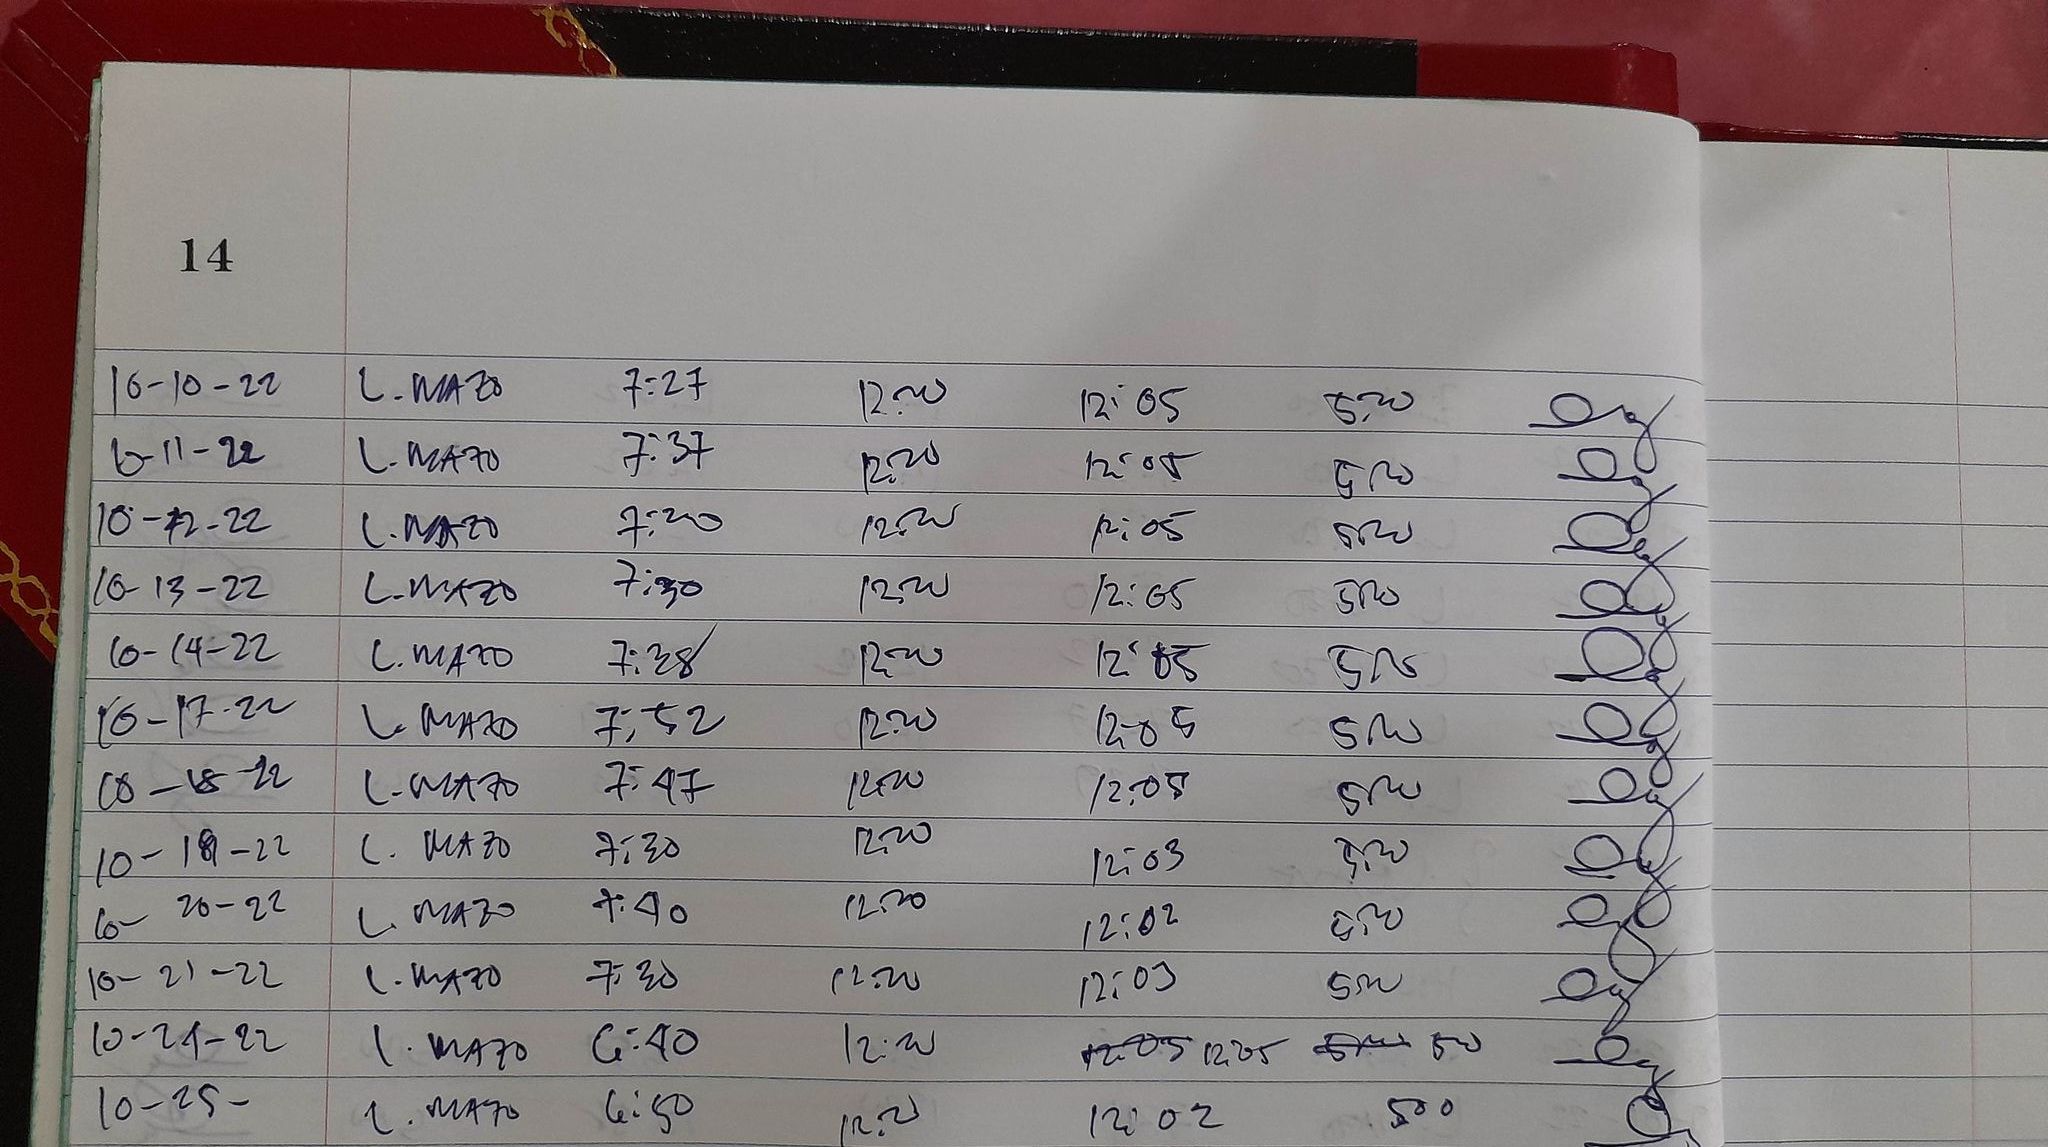 14
10-10-22 L. MAZO 7:27 12:00 12:05 5:00
10-11-22 L. MAZO 7:37 12:00 12:05 5:00
10-12-22 L. MAZO 7:20 12:00 12:05 5:00
10-13-22 L. MAZO 7:30 12:00 12:05 5:00
10-14-22 L. MAZO 7:38 12:00 12:05 5:00
10-17-22 L. MAZO 7:52 12:00 12:05 5:00
10-18-22 L. MAZO 7:47 12:00 12:05 5:00
10-19-22 L. MAZO 7:30 12:00 12:03 5:00
10-20-22 L. MAZO 7:40 12:00 12:02 5:00
10-21-22 L. MAZO 7:30 12:00 12:03 5:00
10-24-22 L. MAZO 6:40 12:00 12:05 12:05 5:00 500
10-25- L. MAZO 6:50 12:00 12:02 500